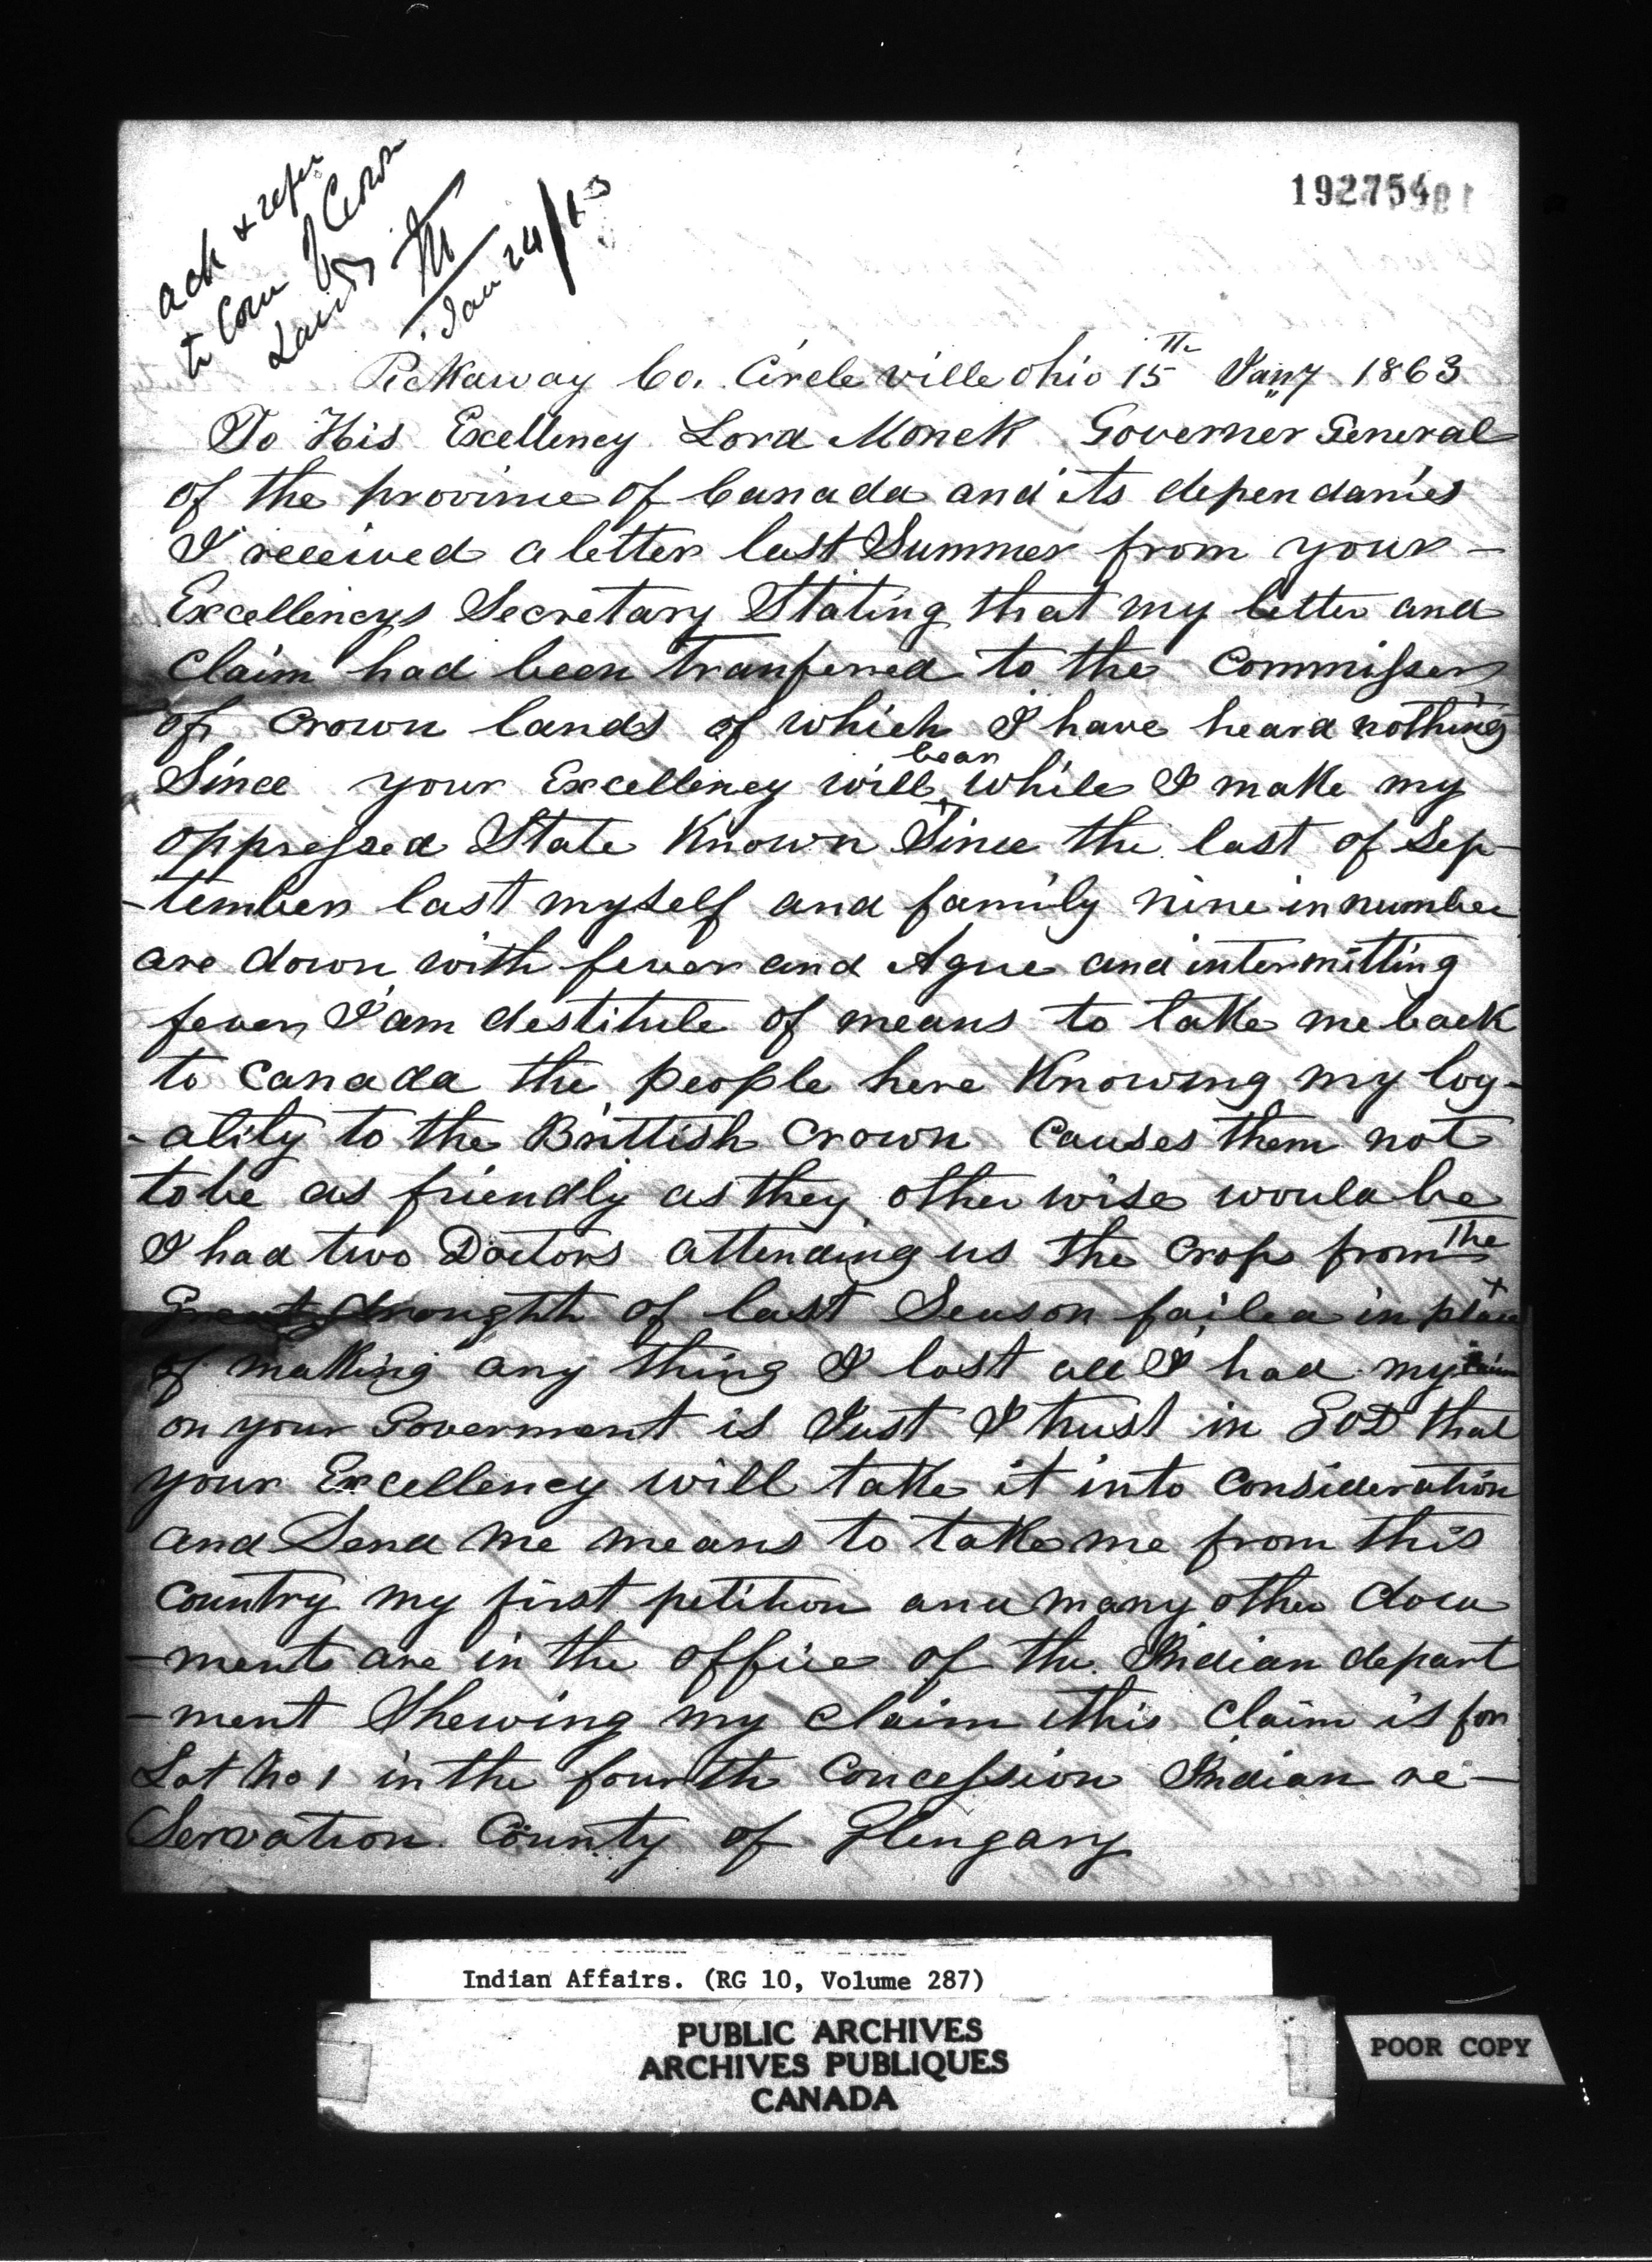 ack & refer
to Com of Crown
Lands
Jan 24/63
192754
Pickaway Co. Circleville Ohio 15th Jany 1863
To His Excellency Lord Monck Governer General
of the province of Canada and its dependanies
I received a letter last Summer from your -
Excellencys Secretary Stating that my letter and
Claim had been tranfered to the Commisser
of Crown lands of which I have heard nothing
Since your Excellency will bear while I make my
oppressed State Known Since the last of Sep-
-tember last myself and family nine in number
are down with fever and Ague and intermitting
fever I am destitute of means to take me back
to Canada the people here Knowing my loy-
-ality to the Brittish Crown Causes them not
to be as friendly as they other wise would be
I had two Doctors attending us the Crops from the
Great droughth of last Season failed in place
of making any thing I lost all I had my claim
on your Goverment is Just I trust in GOD that
your Excellency will take it into Consideration
and Send me means to take me from this
Country my first petition and many other docu
-ments are in the office of the Indian depart
-ment Shewing my Claim this Claim is for
Lot No 1 in the fourth Concession Indian re-
Servation County of Glengary
Indian Affairs. (RG 10, Volume 287)
PUBLIC ARCHIVES
ARCHIVES PUBLIQUES
CANADA
POOR COPY